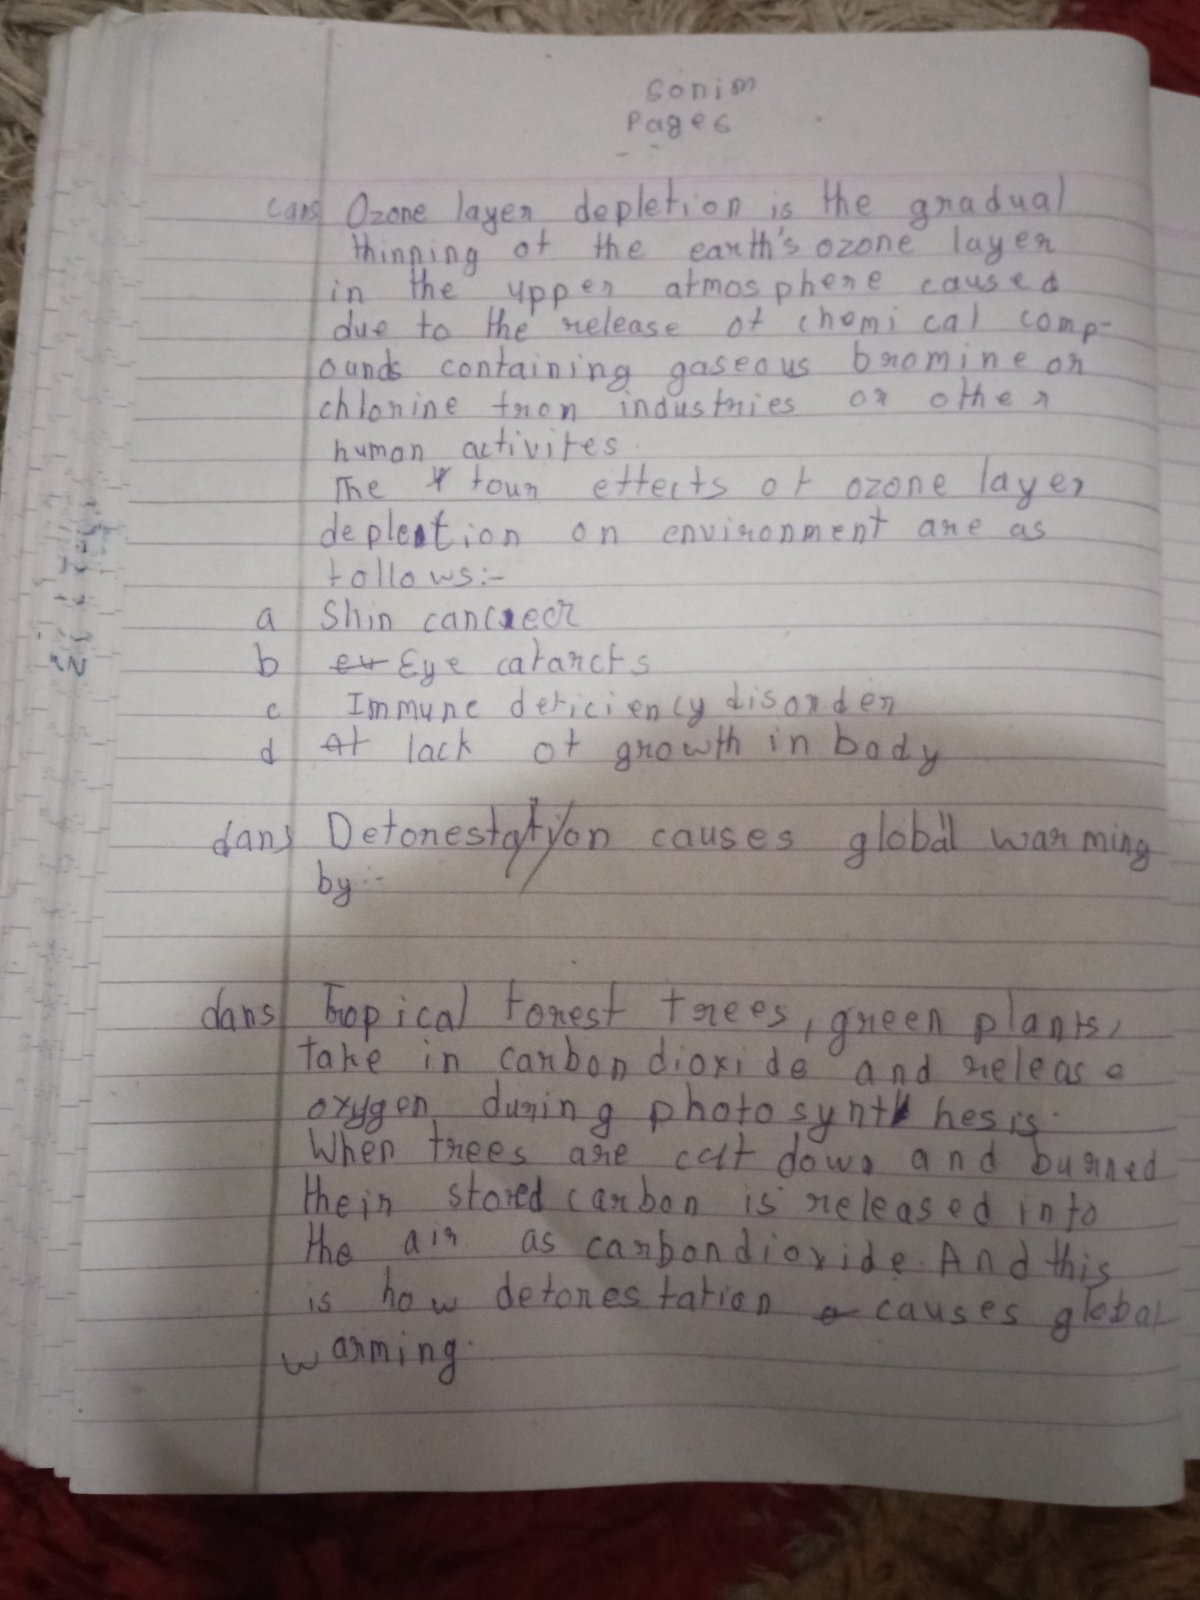 Sonim
Pages
cans Ozone layer depletion is the gradual
thinning of the earth's ozone layer
in the upper atmosphere caused
due to the release of chemical comp-
ounds containing gaseous bromine or
chlorine from industries or other
human activites.
The four effects of ozone layer
depletion on environment are as
follows:-
a Skin cancer
b Eye catarcts
c Immune deficiency disorder
d lack of growth in body
dans Deforestation causes global warming
by:-
dans Tropical forest trees, green plants,
take in carbon dioxide and release
oxygen during photosynthesis.
When trees are cut down and burned
their stored carbon is released into
the air as carbondioxide. And this
is how deforestation causes global
warming.